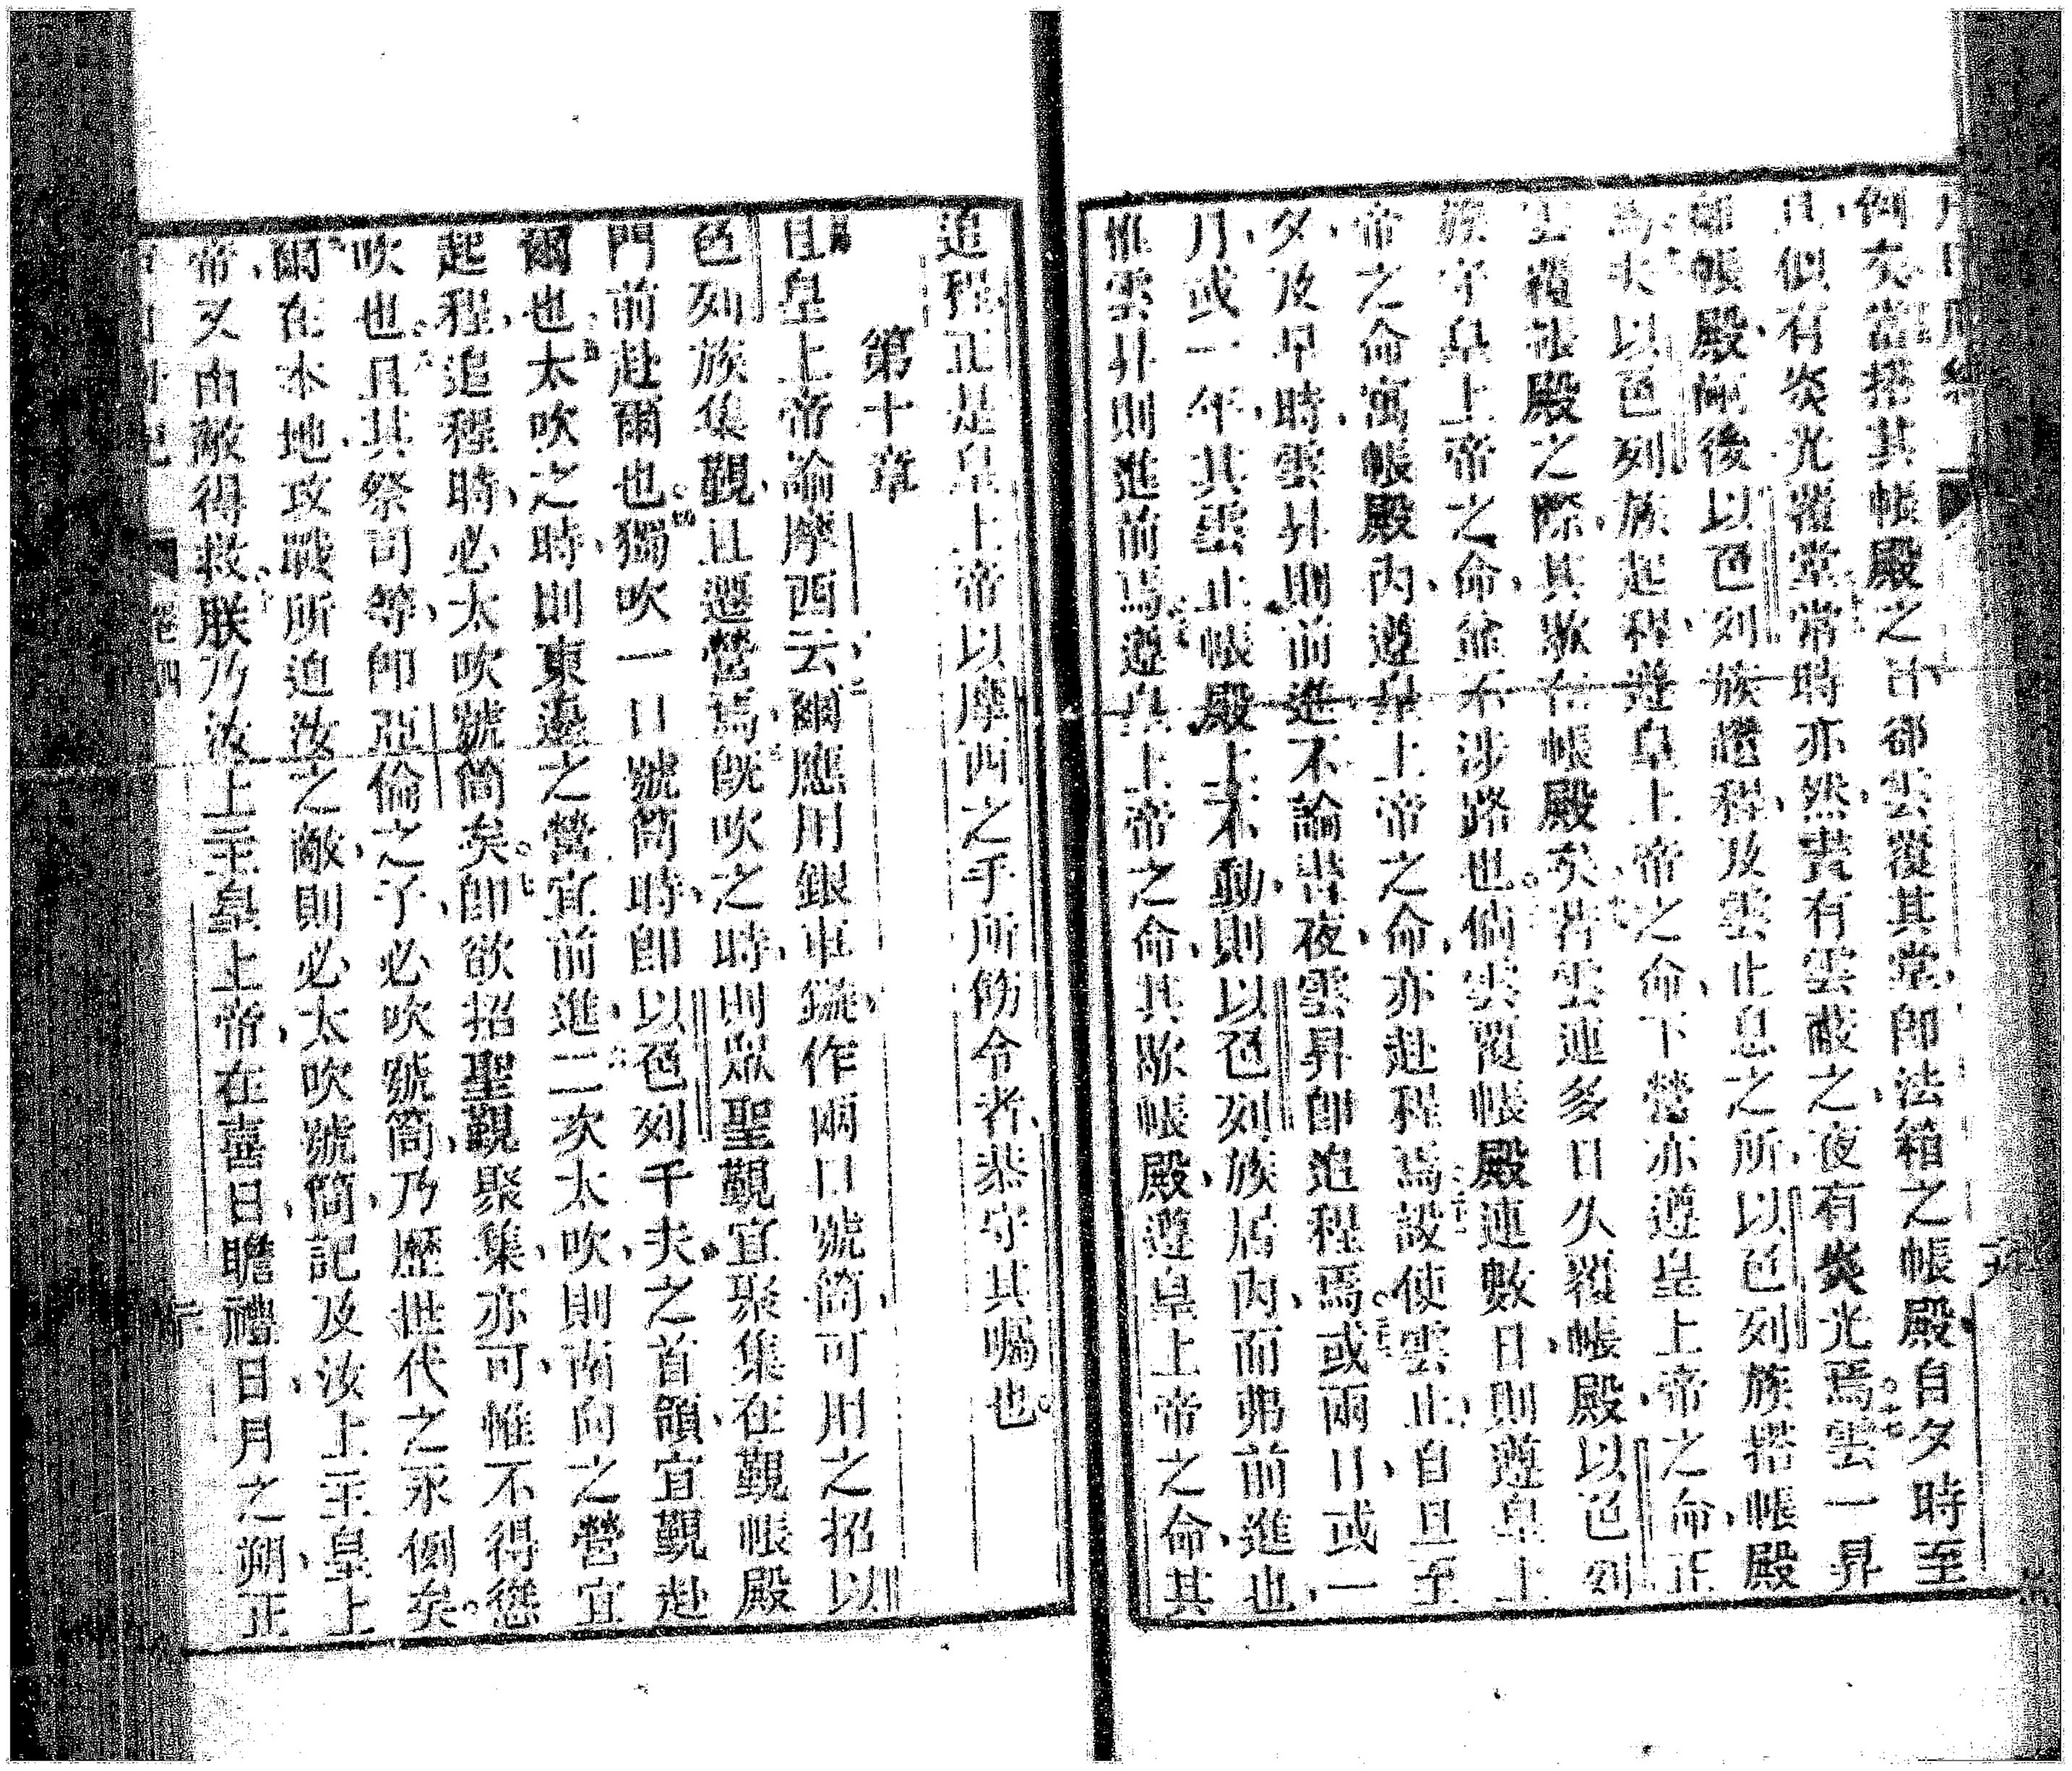 例矣當搭其帳殿之日卻雲覆其堂卽法箱之帳殿自夕時至
旦似有炎光覆堂常時亦然晝有雲蔽之夜有炎光焉雲一昇
離帳殿隨後以色列族起程及雲止息之所以色列族搭帳殿
焉夫以色列族起程遵皇上帝之命下營亦遵皇上帝之命正
雲覆帳殿之際其歇在帳殿矣若雲連多日久覆帳殿以色列
族守皇上帝之命並不涉路也倘雲覆帳殿連數日則遵皇上
帝之命寓帳殿內遵皇上帝之命亦赴程焉設使雲止自旦至
夕及早時雲昇則前進不論晝夜雲昇卽追程焉或兩日或一
月或一年其雲止帳殿上未動則以色列族居內而弗前進也
惟雲昇則進前焉遵皇上帝之命其歇帳殿遵皇上帝之命其
追程正是皇上帝以摩西之手所飭令者恭守其囑也
第十章
且皇上帝諭摩西云爾應用銀車鏇作兩口號筒可用之招以
色列族集覲且還營焉旣吹之時則眾聖覲宜聚集在覲帳殿
門前赴爾也獨吹一口號筒時卽以色列千夫之首領宜覲赴
爾也太吹之時則東邊之營宜前進二次太吹則南向之營宜
起程追程時必太吹號筒矣卽欲招聖覲聚集亦可惟不得戀
吹也且其祭司等卽亞倫之子必吹號筒乃歷世代之永例矣
爾在本地攻戰所迫汝之敵則必太吹號筒記及汝上主皇上
帝又由敵得救朕乃汝上主皇上帝在喜日瞻禮日月之朔正
卷四